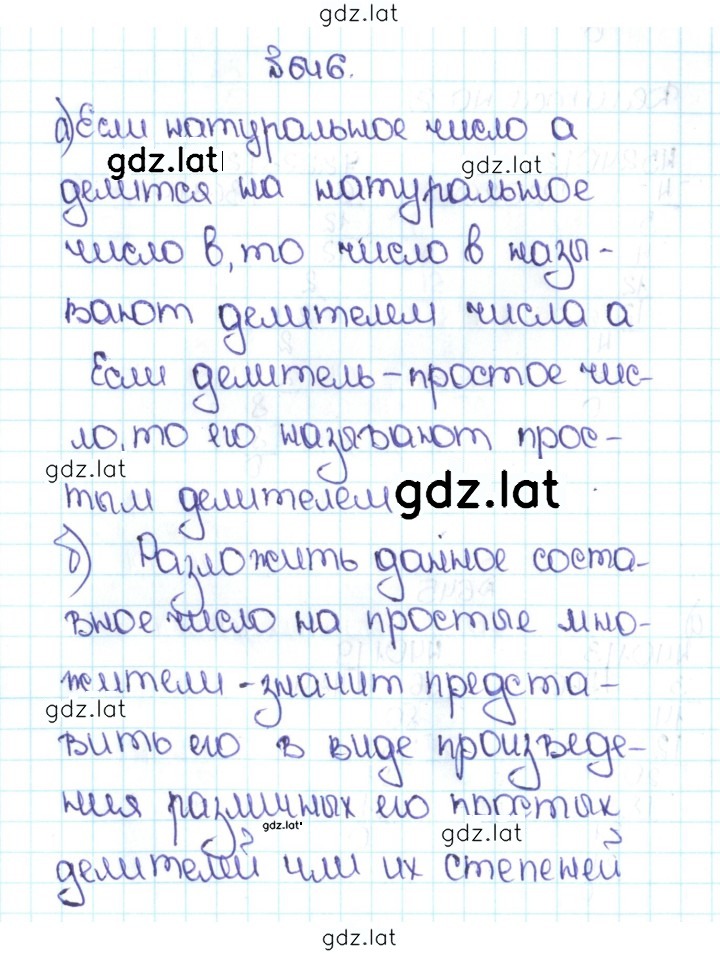 gdz.lat
№646.
а) Если натуральное число а
gdz.lat gdz.lat
делится на натуральное
число в, то число в назы-
вают делителем числа а
Если делитель - простое чис-
ло, то его называют прос-
gdz.lat
тым делителем gdz.lat
б) Разложить данное соста-
вное число на простые мно-
жители - значит предста-
gdz.lat
вить его в виде произведе-
ния различных его простых
gdz.lat gdz.lat
делителей или их степеней
gdz.lat